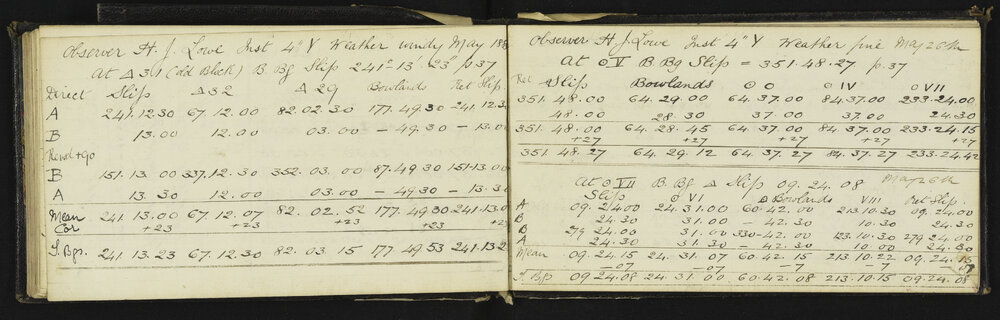 Observer H. J. Lowe Inst 4" Y Weather windy May 18
At △31 (Old Block) B Bg Slip 241° 13' 23" p 37
Direct Slip △32 △29 Bowlands Ret Slip
A 241.12.30 67.12.00 82.02.30 177.49.30 241.12.3
B 13.00 12.00 03.00 - 49.30 - 13.00
Revd +90
B 151.13.00 337.12.30 352.03.00 87.49.30 151.13.00
A 13.30 12.00 03.00 - 49.30 - 13.30
Mean 241.13.00 67.12.07 82.02.52 177.49.30 241.13.0
Cor +23 +23 +23
T. Bgs. 241.13.23 67.12.30 82.03.15 177 49 53 241.13.2
Observer H J. Lowe Inst 4" Y Weather fine May 26th
At ⊙V B Bg Slip = 351.48.27 p.37
Ret Slip Bowlands ⊙ O ⊙ IV ⊙ VII
351.48.00 64.29.00 64.37.00 84.37.00 233.24.00
48.00 28 30 37.00 37.00 24.30
351.48.00 64.28.45 64.37.00 84.37.00 233.24.15
+27 +27 +27 +27 +27
351.48.27 64.29.12 64.37.27 84.37.27 233.24.42
At ⊙VII B. Bg △ Slip 09.24.08 May 26th
Slip ⊙ VI △ Bowlands VIII Ret Slip.
A 09.24.00 24.31.00 60.42.00 213.10.30 09.24.00
B 24.30 31.00 - 42.30 10.30 24.30
B 279 24.00 31.00 330-42.00 123.10.30 279 24.00
A 24.30 31.30 - 42.30 10.00 24.30
Mean 09.24.15 24.31.07 60.42.15 213.10.22 09.24.15
-07 -07 -7 -7 -07
T Bgs 09.24.08 24.31.00 60-42.08 213.10.15 09.24.08